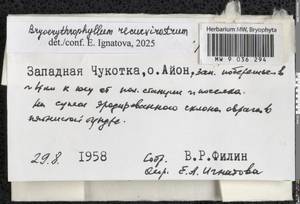 Bryoerythrophyllum recurvirostrum
det./conf. E. Ignatova, 2025
Herbarium MW, Bryophyta
MW 9 036 294
Западная Чукотка, о. Айон, зап. побережье в
км к югу от пол. станции и поселка.
На сухом эродированном склоне оврага в
пятнистой тундре.
29.8. 1958 Собр. В.Р.Филин
Опр. Е.А. Игнатова